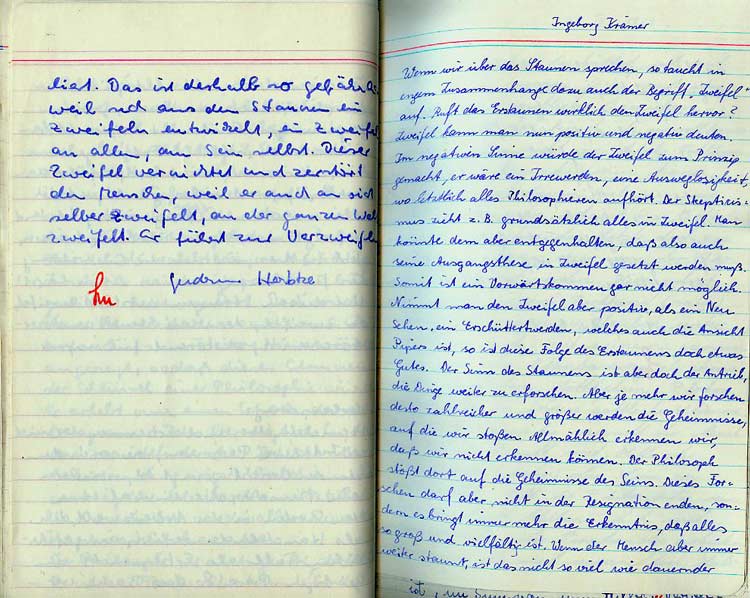 liert. Das ist deshalb so gefährli
weil sich aus dem Staunen ein
Zweifeln entwickelt, ein Zweifel
an allem, am Sein selbst. Dieser
Zweifel vernichtet und zerstört
den Menschen, weil er auch an sich
selber zweifelt, an der ganzen Wel
zweifelt. Er führt zur Verzweifl
Gudrun
Ingeborg Krämer
Wenn wir über das Staunen sprechen, so taucht in
engem Zusammenhange dazu auch der Begriff „Zweifel"
auf. Ruft das Erstaunen wirklich den Zweifel hervor?
Zweifel kann man nun positiv und negativ deuten.
Im negativen Sinne würde der Zweifel zum Prinzip
gemacht, er wäre ein Irrewerden, eine Ausweglosigkeit,
wo letztlich alles Philosophieren aufhört. Der Skepticis-
mus zieht z. B. grundsätzlich alles in Zweifel. Man
könnte dem aber entgegenhalten, daß also auch
seine Ausgangsthese in Zweifel gesetzt werden muß.
Somit ist ein Vorwärtskommen gar nicht möglich.
Nimmt man den Zweifel aber positiv, als ein Neu
Sehen, ein Erschüttertwerden, welches auch die Ansicht
Pipers ist, so ist diese Folge des Erstaunens doch etwas
Gutes. Der Sinn des Staunens ist aber doch der Antrieb,
die Dinge weiter zu erforschen. Aber je mehr wir forschen
desto zahlreicher und größer werden die Geheimnisse,
auf die wir stoßen. Allmählich erkennen wir,
daß wir nicht erkennen können. Der Philosoph
stößt dort auf die Geheimnisse des Seins. Dieses For-
schen darf aber nicht in der Resignation enden, son-
dern es bringt immer mehr die Erkenntnis, daß alles
so groß und vielfältig ist. Wenn der Mensch aber immer
weiter staunt, ist das nicht so viel wie dauernder
ist, im Sinn